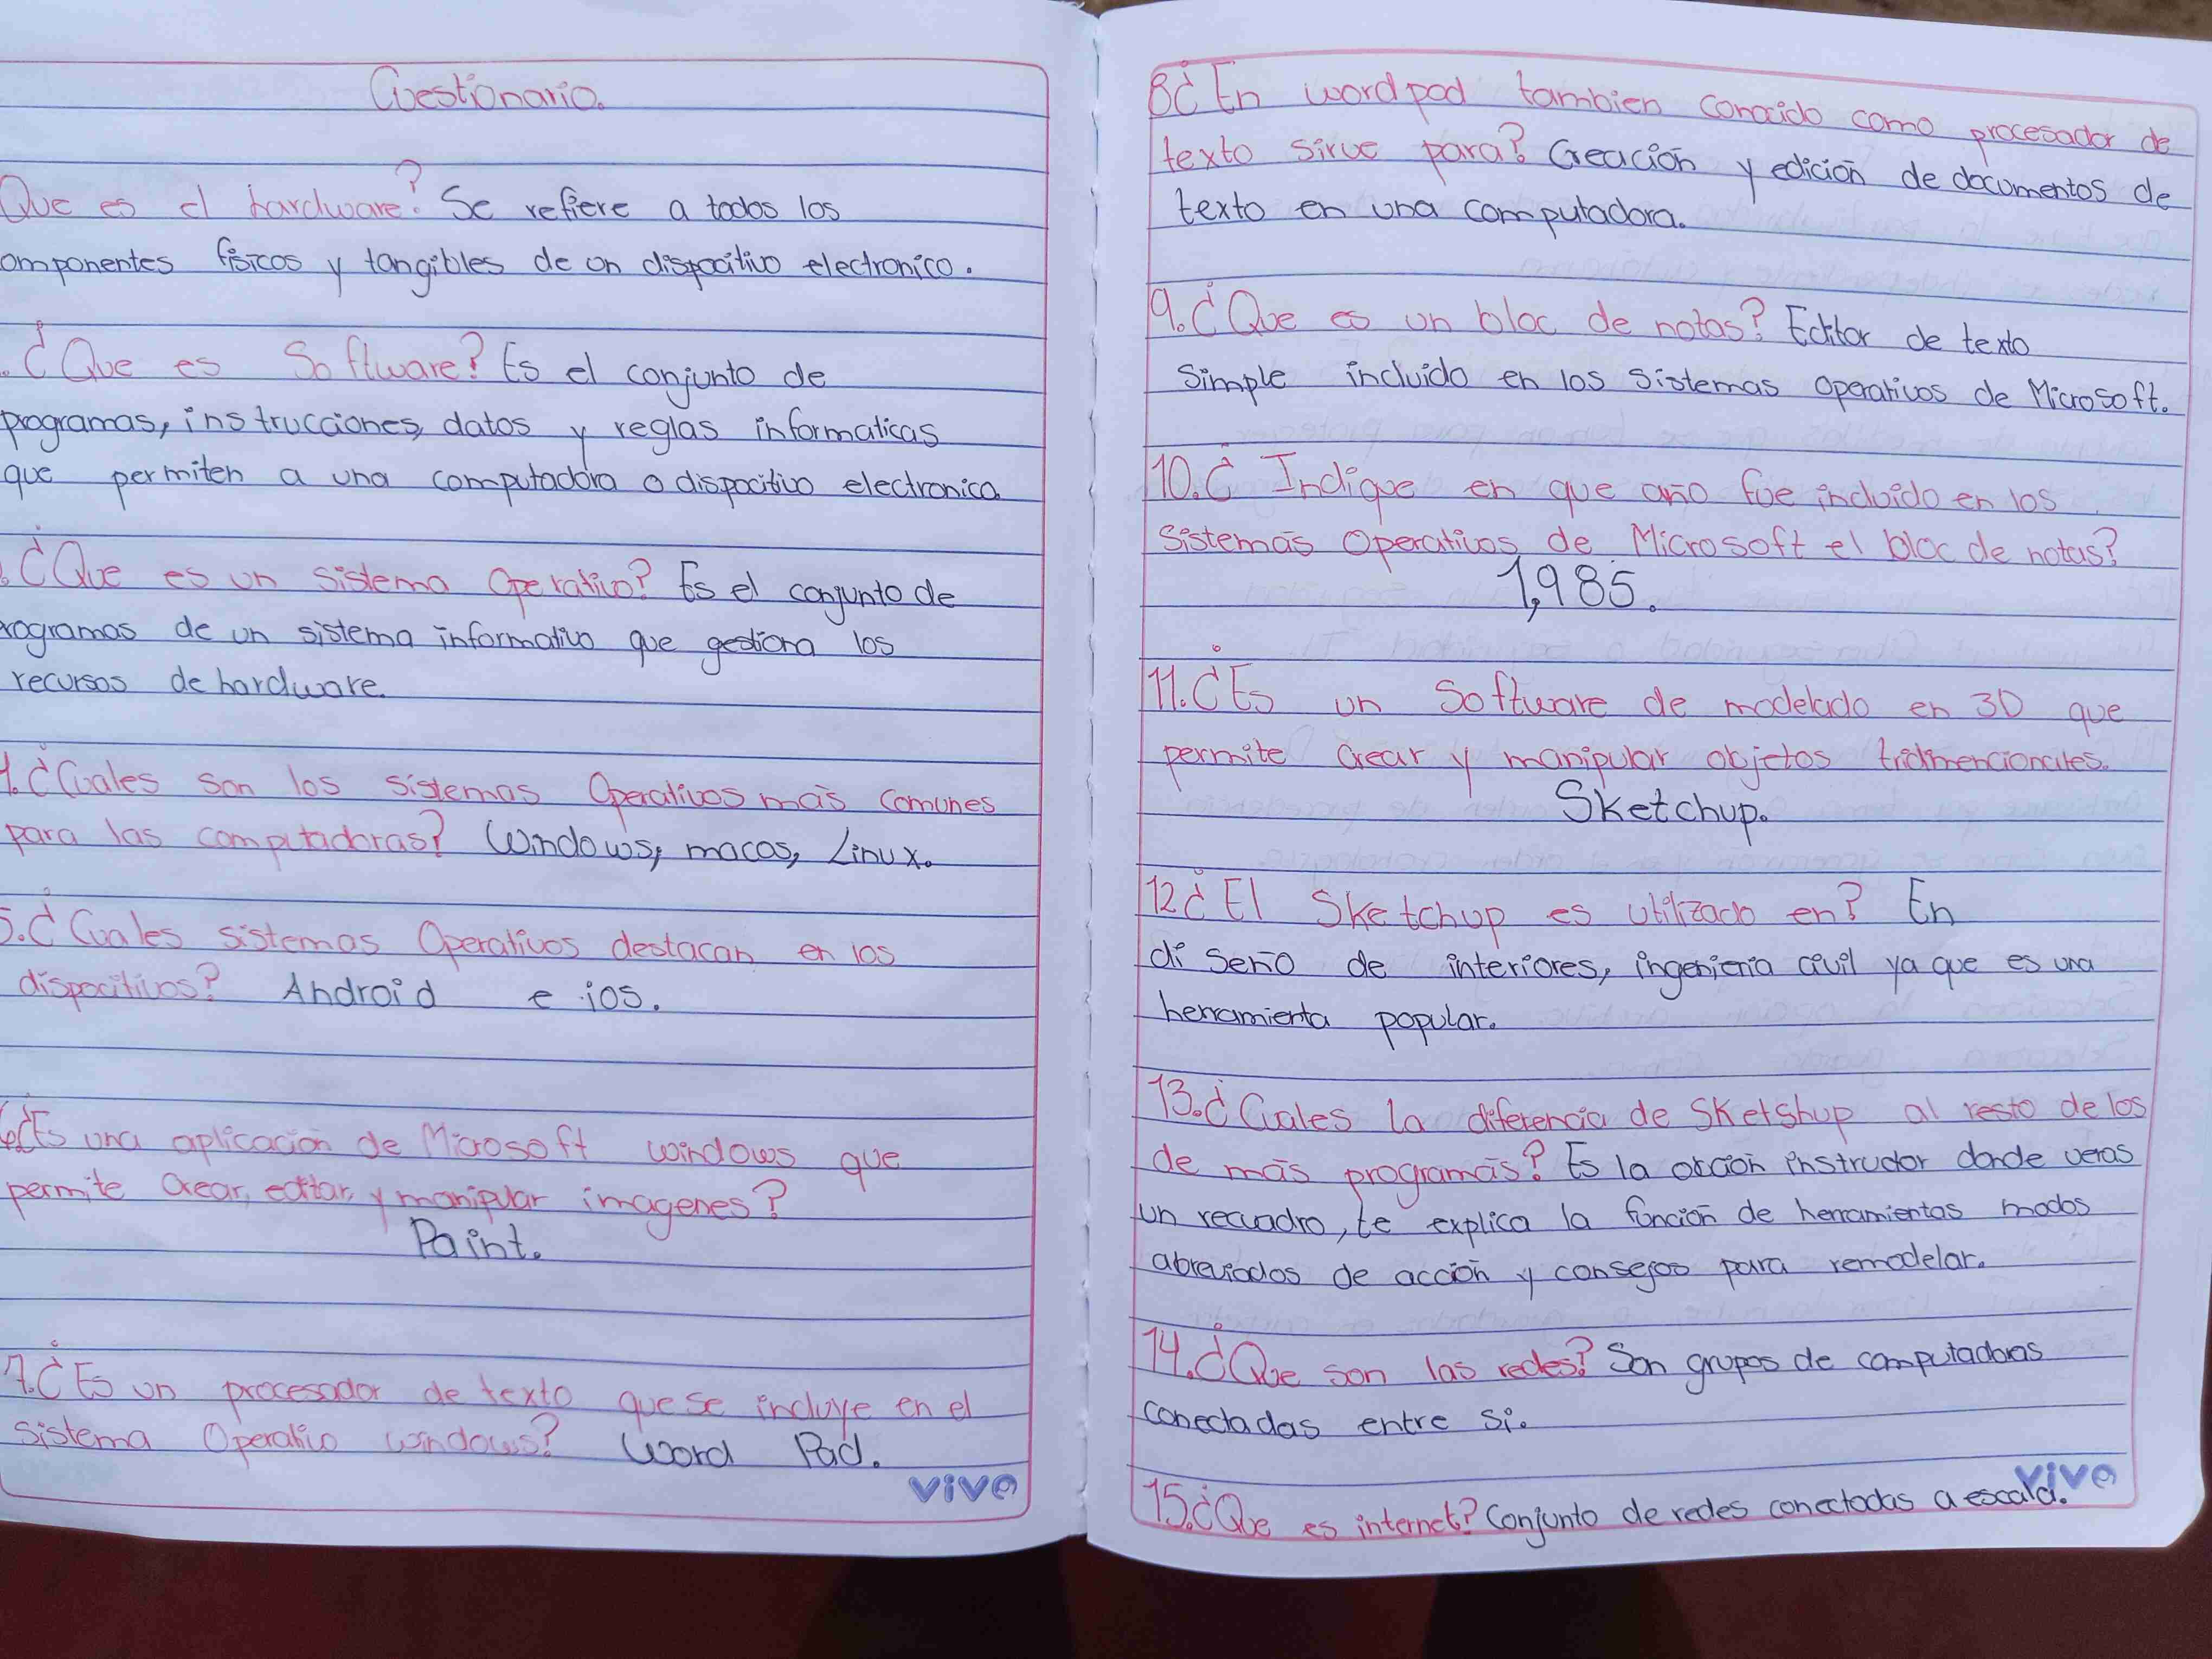 Cuestionario.
Que es el hardware? Se refiere a todos los
omponentes físicos y tangibles de un dispocitivo electronico.
.¿Que es Software? Es el conjunto de
programas, instrucciones, datos y reglas informaticas
que permiten a una computadora o dispocitivo electronica
.¿Que es un sistema Operativo? Es el conjunto de
rogramas de un sistema informativo que gestiona los
recursos de hardware.
4.¿Cuales son los sistemas Operativos más comunes
para las computadoras? Windows, macos, Linux.
5.¿Cuales sistemas Operativos destacan en los
dispocitivos? Android e ios.
6.¿Es una aplicación de Microsoft windows que
permite crear, editar, y manipular imagenes?
Paint.
7.¿Es un procesador de texto que se incluye en el
sistema Operativo windows? Word Pad.
vivo
8¿En wordpad tambien conocido como procesador de
texto sirve para? Creación y edición de documentos de
texto en una computadora.
9.¿Que es un bloc de notas? Editor de texto
simple incluido en los sistemas operativos de Microsoft.
10.¿Indique en que año fue incluido en los
sistemas Operativos de Microsoft el bloc de notas?
1,985.
11.¿Es un Software de modelado en 3D que
permite crear y manipular objetos tridimencionales.
Sketchup.
12¿El Sketchup es utilizado en? En
diseño de interiores, ingenieria civil ya que es una
herramienta popular.
13.¿Cuales la diferencia de Sketshup al resto de los
de más programás? Es la occión instrudor donde veras
un recuadro, te explica la función de herramientas modos
abreviados de acción y consejos para remodelar.
14.¿Que son las redes? Son grupos de computadoras
conectadas entre si.
15.¿Que es internet? Conjunto de redes conectadas a escala.
vivo